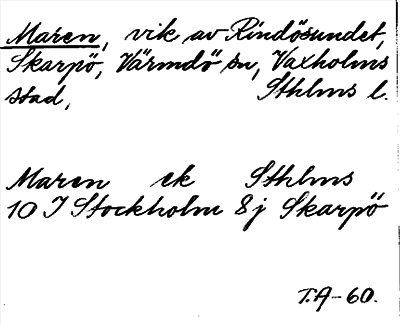 Maren, vik av Rindösundet,
Skarpö, Värmdö sn, Vaxholms
stad, Sthlms l.
Maren ek Sthlms
10 I Stockholm 8 j Skarpö
T.A-60.